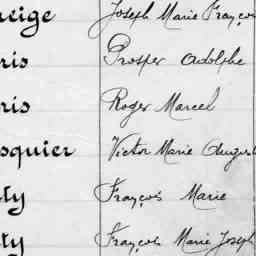 neige Joseph Marie Françoi
ris Prosper Adolphe
ris Roger Marcel
squier Victor Marie August
ty François Marie
ty François Marie Joseph